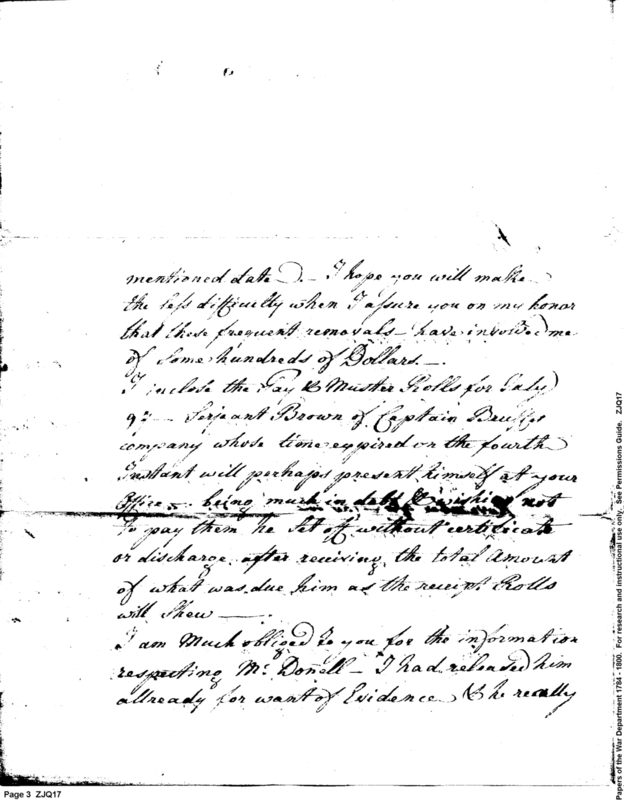 mentioned date). – I hope you will make
the less difficulty when I assure you on my honor
that these frequent removals – have involved me
of some hundreds of Dollars. –
I inclose the Pay & Muster Rolls for July
Serjeant Brown of Captain
company whose time expired on the fourth
Instant will perhaps present himself at your
Office – being much in debt & wishing not
to pay them he set off without certificate
or discharge after receiving the total Amount
of what was due him as the receipt Rolls
will Shew –
I am Much obliged to you for the information
respecting Mc Donell – I had released him
allready for want of Evidence & he really
Page 3 ZJQ17
Papers of the War Department 1784 - 1800. For research and instructional use only. See Permissions Guide. ZJQ17